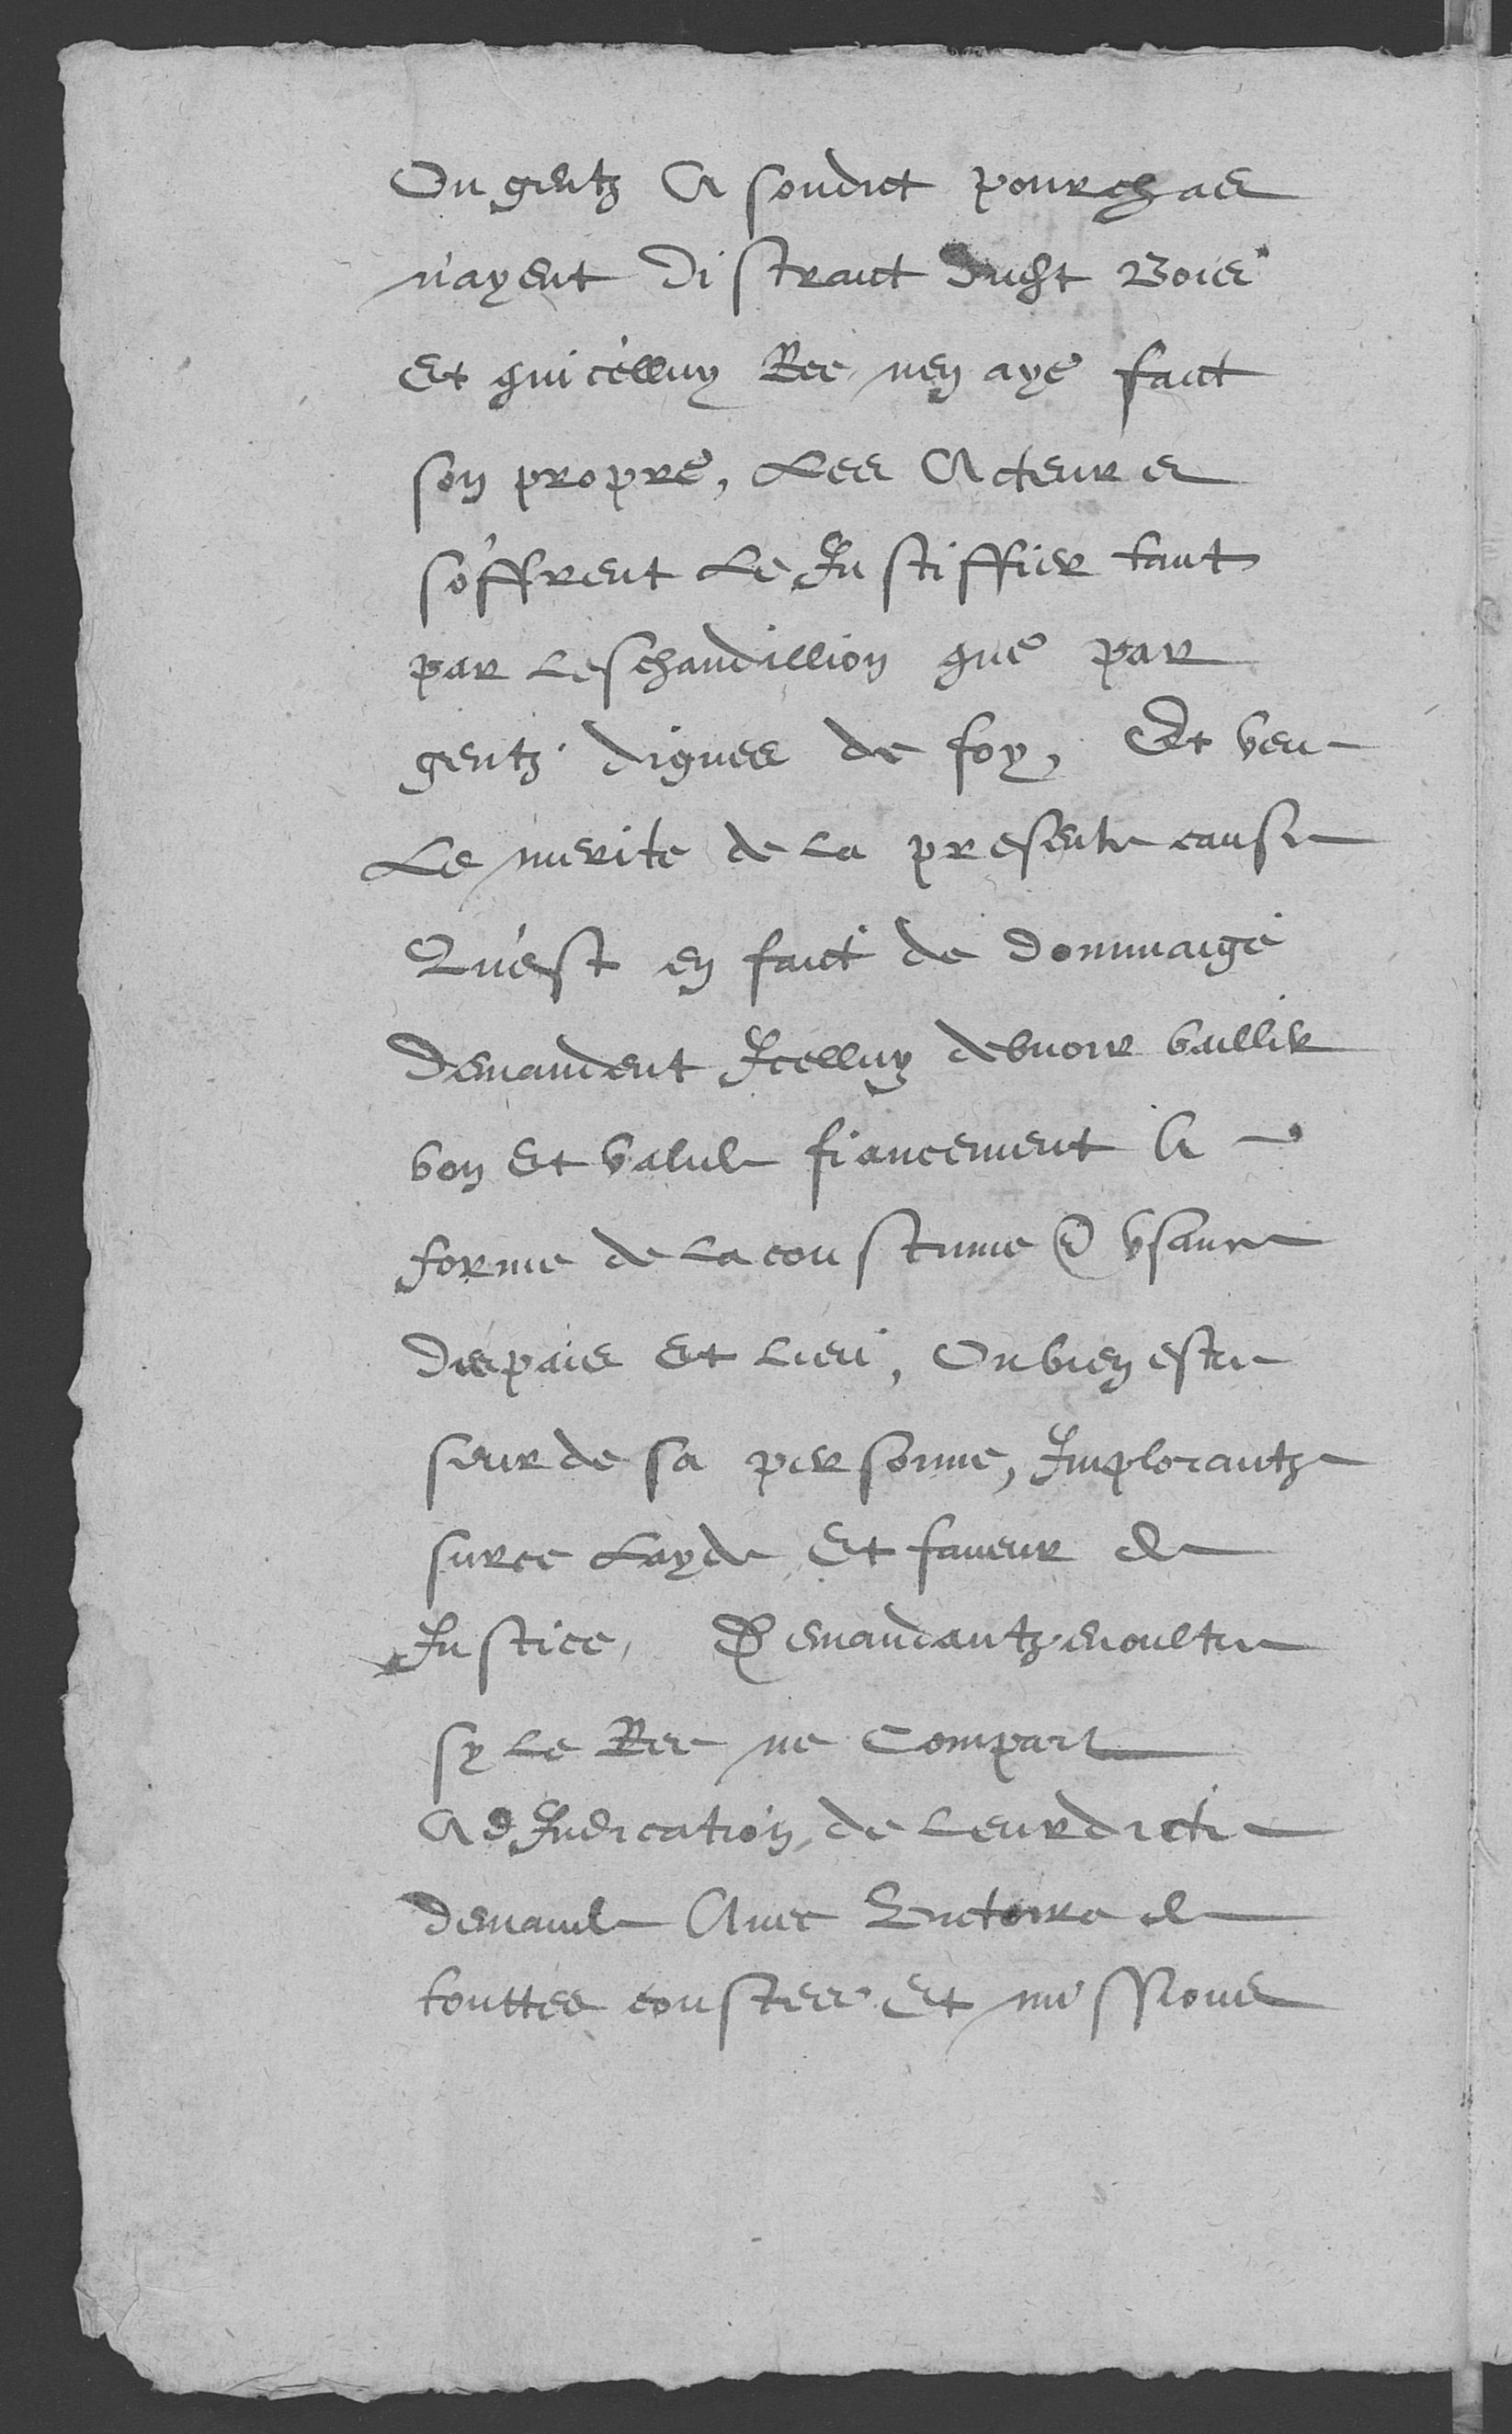 Ou gentz A sondict pourchas
n'ayent distraict dudict Bois
Et qu'icelluy Ree nen aye faict
son propre, Les Acteurs
s'offrent Le Justiffier tant
par Leschandillion que par
gentz dignes de foy, Et veu
Le merite de La presente cause
Qu'est en faict de dommaige
Demandent Icelluy debvoir bailler
bon Et valide fiancement A
forme de La coustume & usance
des pais Et Lieu, Ou bien estre
seur de sa personne, Implorantz
sur ce Layde Et faveur de
Justice, Demandantz en oultre
sy Le Ree ne Compart
Adjudication de Leurdicte
demande Avec Victoire de
touttes coustes Et missions